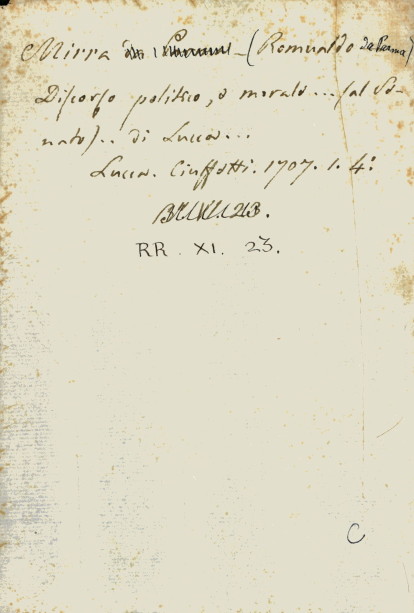 Mirra (Romualdo da Parma)
Discorso politico, e morale... (al Se-
nato).. di Lucca...
Lucca. Ciuffetti. 1707. 1. 4°.
RR. XI. 23.
C